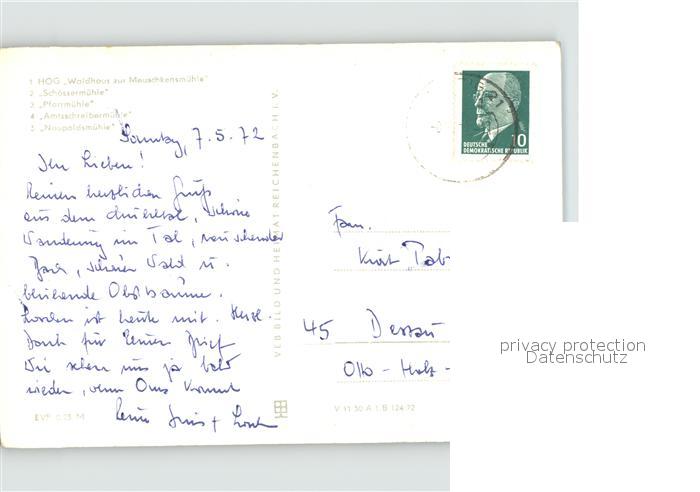 1 HOG „Waldhaus zur Meuschkensmühle"
2 „Schössermühle"
3 „Pfarrmühle"
4 „Amtsschreibermühle"
5 „Naupoldsmühle"
Sonntag, 7.5.72
Ihr Lieben!
herzlichen Gruß
aus dem schöne
Wanderung im Tal, rauschender
Bach, Wald u.
blühende Obstbäume.
ist heute mit. Herzl.
Dank für Brief
Wir sehen uns ja bald
wieder, wenn Oma kommt
+
EVP 0,25 M
VEB BILD UND HEIMAT REICHENBACH I. V.
V 11 50 A 1 B 124/72
DEUTSCHE
DEMOKRATISCHE REPUBLIK
10
Fam.
Kurt Tab
45 Dessau
Otto - Holz -
privacy protection
Datenschutz